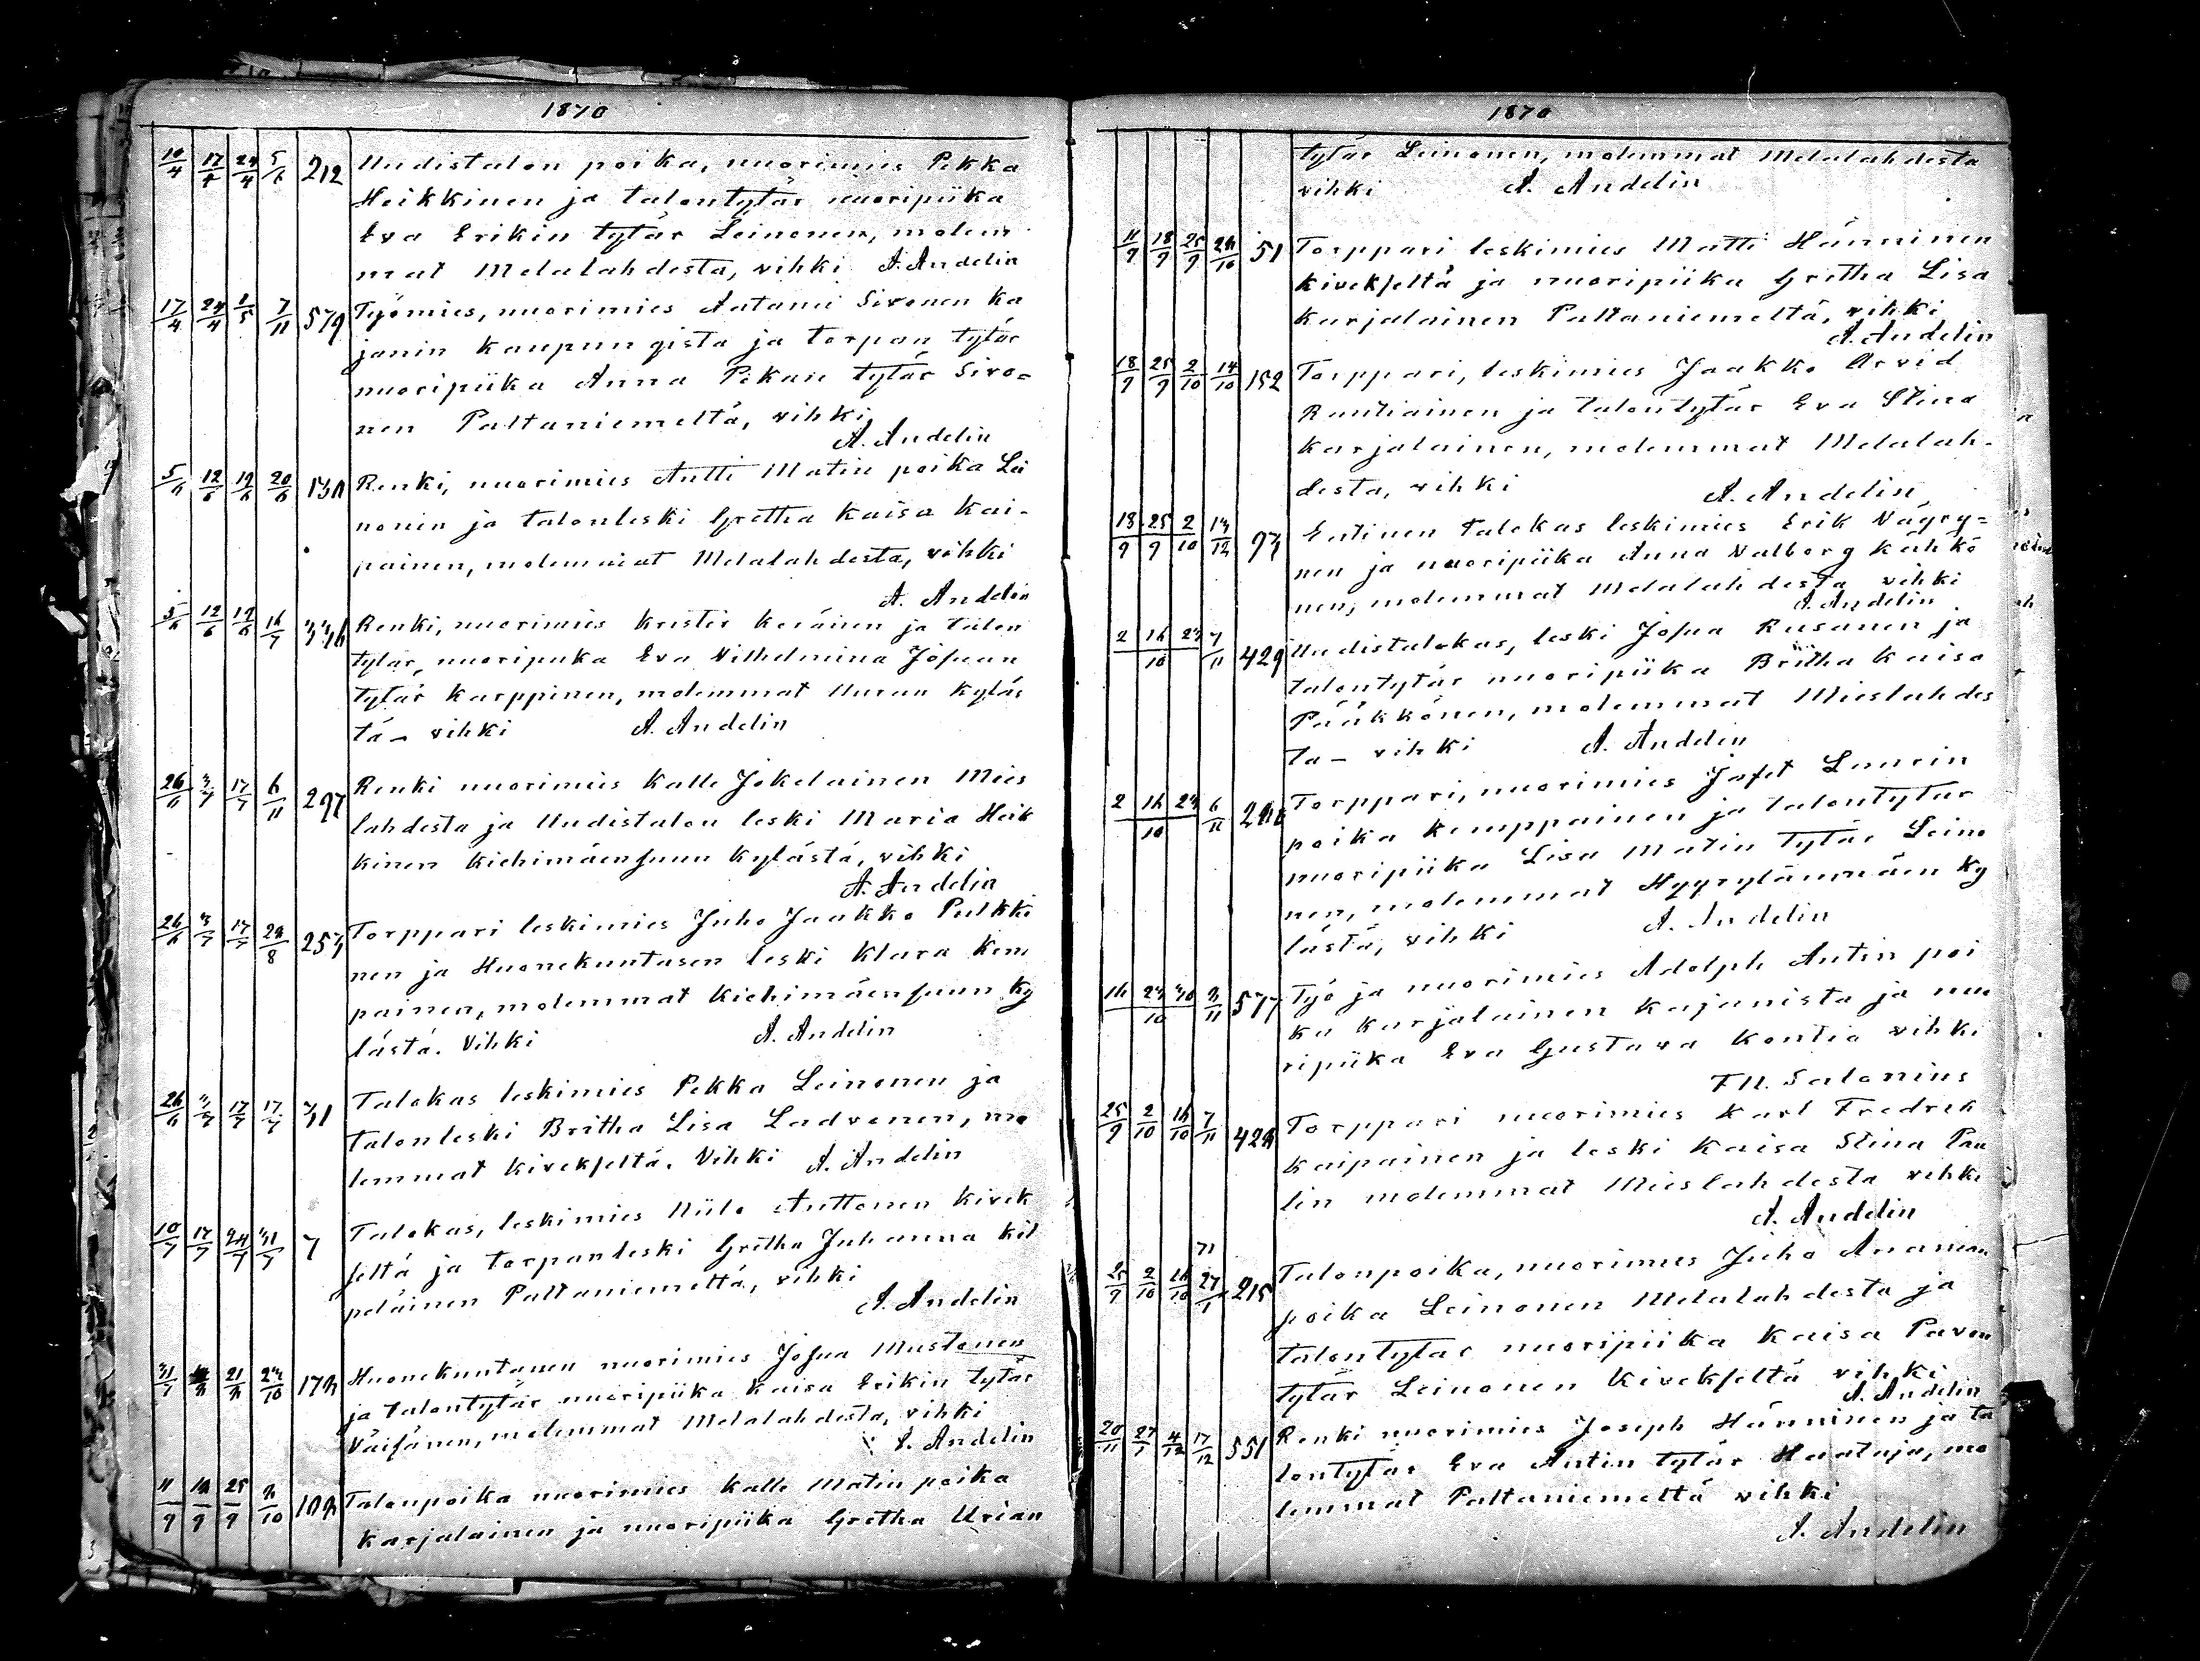 1870
10/4 17/4 24/4 5/6 212 Uudistalon poika, nuorimies Pekka
Heikkinen ja talontytär nuoripiika
Eva Erikin tytär Leinonen, molem
mat Melalahdesta, vihki A. Andelin
17/4 24/4 1/5 7/11 579 Työmies, nuorimies Aatami Sivonen Ka
janin kaupungista ja torpan tytär
nuoripiika Anna Pekan tytär Sivo=
nen Paltaniemeltä, vihki
A. Andelin
5/6 12/6 19/6 20/6 Renki, nuorimies Antti Matin poika Lei
nonin ja talonleski Gretha Kaisa Kai-
painen, molemmat Melalahdesta, vihki
A. Andelin
5/6 12/6 19/6 16/7 Renki, nuorimies Krister Keränen ja talon
tytär, nuoripiika Eva Vilhelmina Josuan
tytär Karppinen, molemmat Uuran kyläs
tä – vihki A. Andelin
26/6 3/7 17/7 6/11 297 Renki nuorimies Kalle Jokelainen Mies
lahdesta ja Uudistalon leski Maria Heik
kinen Kiehimäensuun kylästä, vihki
A. Andelin
26/6 3/7 17/7 257 Torppari leskimies Juho Jaakko Pulkki
nen ja Huonekuntasen leski Klara Kem
painen, molemmat Kiehimäensuun ky
lästä. Vihki A. Andelin
26/6 3/7 17/7 17/7 Talokas leskimies Pekka Leinonen ja
talonleski Britha Lisa Ladvonen, mo
lemmat Kivekseltä. Vihki A. Andelin
10/7 17/7 24/7 31/7 7 Talokas, leskimies Niilo Anttonen Kivek
seltä ja torpanleski Gretha Juhanna Kil
peläinen Paltaniemeltä, vihki
A. Andelin
31/7 21/8 23/10 178 Huonekuntanen nuorimies Josua Mustonen
ja talontytär nuoripiika Kaisa Erikin tytär
Väisänen, molemmat Melalahdesta, vihki
A. Andelin
11/9 18/9 25/9 8/10 108 Talonpoika nuorimies Kalle Matin poika
Karjalainen ja nuoripiika Gretha Urian
1870
tytär Leinonen, molemmat Melalahdesta
vihki A. Andelin
11/9 18/9 25/9 51 Torppari leskimies Matti Hänninen
Kivekseltä ja nuoripiika Gretha Lisa
Karjalainen Paltaniemeltä, vihki
A. Andelin
18/9 25/9 2/10 14/10 152 Torppari, leskimies Jaakko Arvid
Runtiainen ja talontytär Eva Stina
Karjalainen, molemmat Melalah-
desta, vihki A. Andelin
18/9 25/9 2/10 13/12 97 Entinen talokas leskimies Erik Näyry=
nen ja nuoripiika Anna Valborg Kähkö
nen, molemmat Melalahdesta vihki
A. Andelin
2 16 23/10 7/11 429 Uudistalokas, leski Josua Rusanen ja
talontytär nuoripiika Britha Kaisa
Pääkkönen, molemmat Mieslahdes
ta – vihki A. Andelin
2 16 23/10 6/11 Torppari, nuorimies Jafet Laurin
poika Kemppainen ja talontytär
nuoripiika Lisa Matin tytär Leino
nen, molemmat Hyyrylänmäen ky
lästä, vihki A. Andelin
16 23 30/10 8/11 577 Työ ja nuorimies Adolph Antin poi
ka Karjalainen Kajanista ja nuo
ripiika Eva Gustava Kontio vihki
F. N. Salonius
25/9 2/10 16/10 7/11 428 Torppari nuorimies Karl Fredrek
Kaipainen ja leski Kaisa Stina Pau
lin molemmat Mieslahdesta vihki
A. Andelin
71
25/9 2/10 16/10 27/1 215 Talonpoika, nuorimies Juho Ananian
poika Leinonen Melalahdesta ja
talontytär nuoripiika Kaisa Pavon
tytär Leinonen Kivekseltä vihki
A. Andelin
20/11 27/11 4/12 17/12 551 Renki nuorimies Joseph Hänninen ja ta
lontytär Eva Antin tytär Haataja, mo
lemmat Paltaniemeltä vihki
A. Andelin